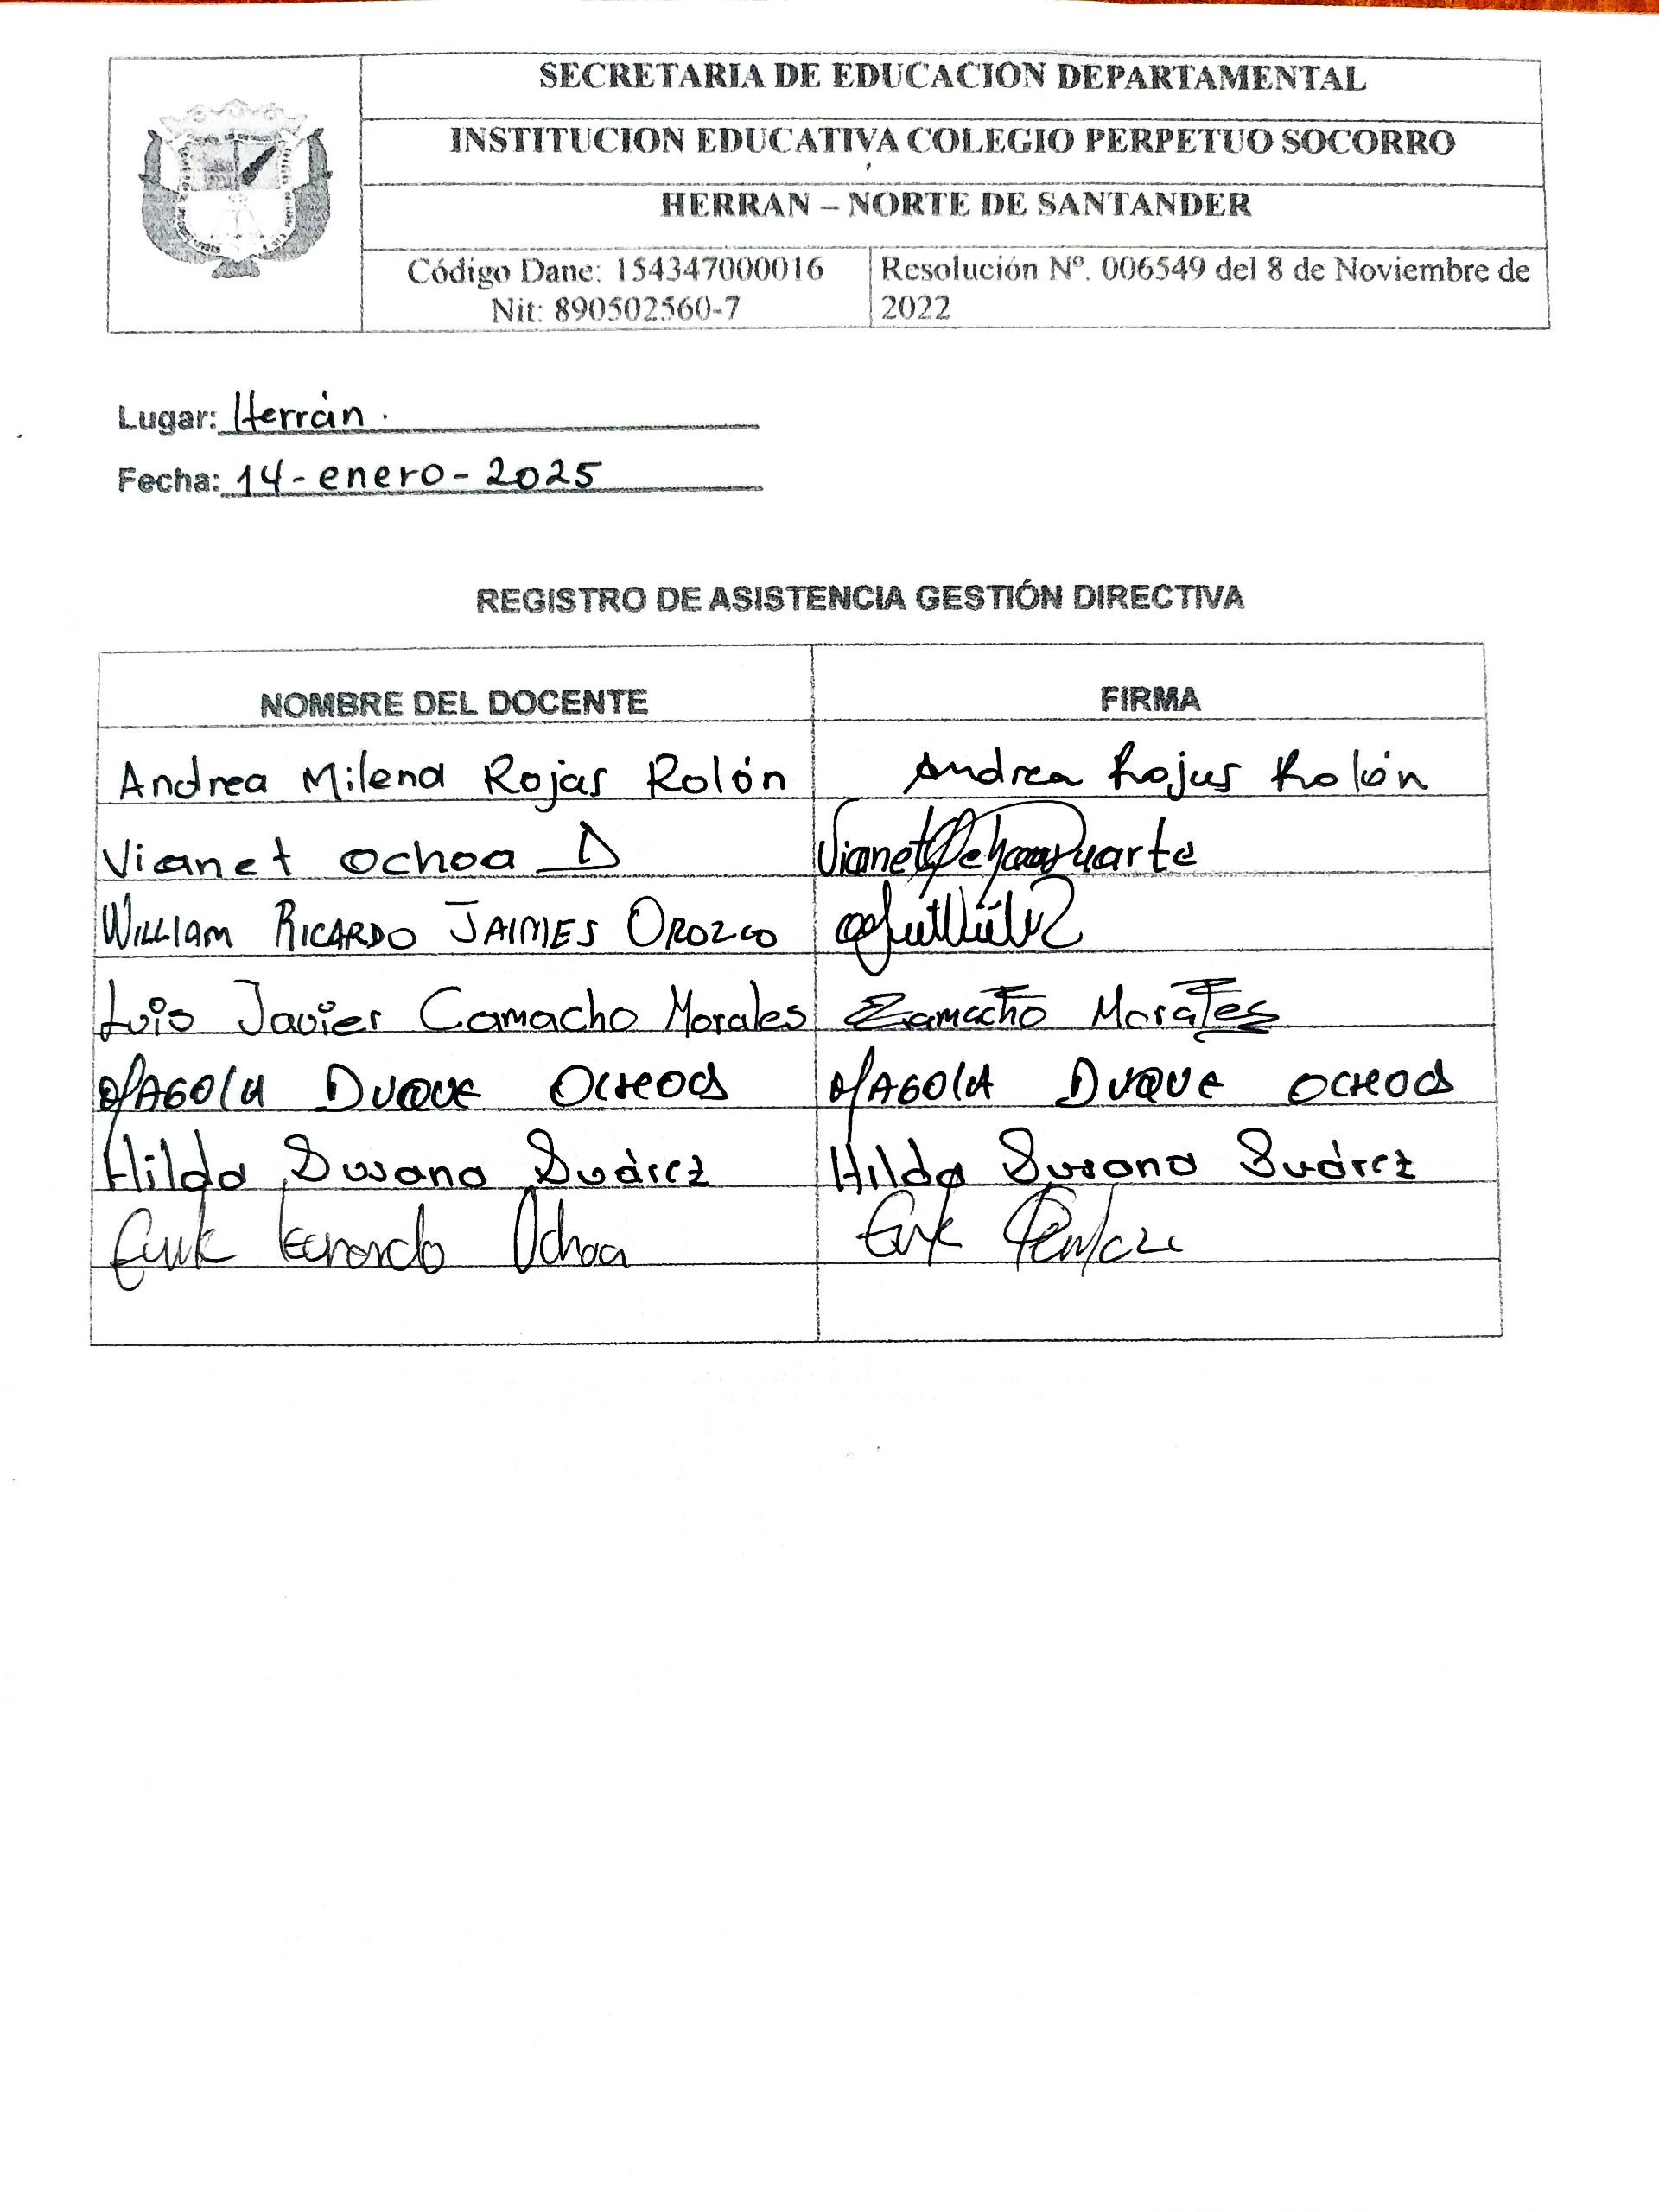 SECRETARIA DE EDUCACION DEPARTAMENTAL
INSTITUCION EDUCATIVA COLEGIO PERPETUO SOCORRO
HERRAN – NORTE DE SANTANDER
Código Dane: 154347000016
Nit: 890502560-7
Resolución Nº. 006549 del 8 de Noviembre de
2022
Lugar: Herrán.
Fecha: 14-enero-2025
REGISTRO DE ASISTENCIA GESTIÓN DIRECTIVA
NOMBRE DEL DOCENTE FIRMA
Andrea Milena Rojas Rolón Andrea Rojas Rolón
Vianet Ochoa D Vianet Duarte
WILLIAM RICARDO JAIMES OROZCO
Luis Javier Camacho Morales Camacho Morales
DUQUE OCHOA DUQUE OCHOA
Hilda Susana Suárez Hilda Susana Suárez
Ochoa